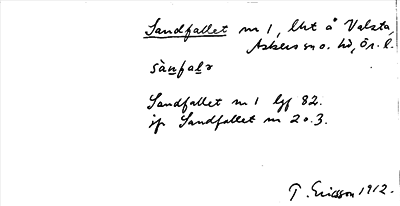 Sandfallet nr 1, lht å Valsta,
Askers sn o. hd, Ör. l.
sànfalə
Sandfallet nr 1 lgf 82.
jfr Sandfallet nr 2 o. 3.
T. Ericsson 1912.